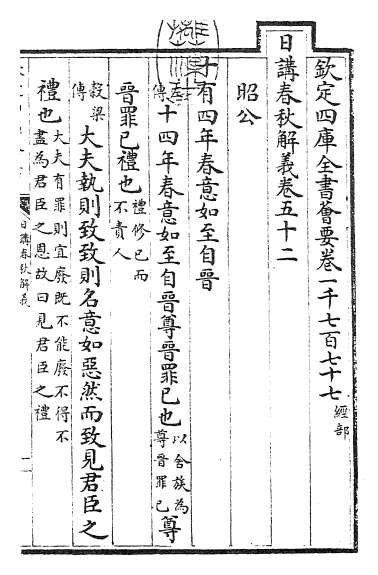 欽定四庫全書薈要卷一千七百七十七 經部
日講春秋解義卷五十二
昭公
十有四年春意如至自晉
左傳 十四年春意如至自晉尊晉罪已也 以舍族為尊晉罪已 尊
晉罪已禮也 禮修已而不責人
穀梁傳 大夫執則致致則名意如惡然而致見君臣之
禮也 大夫有罪則宜廢既不能廢不得不盡為君臣之恩故曰見君臣之禮
日講春秋解義
一